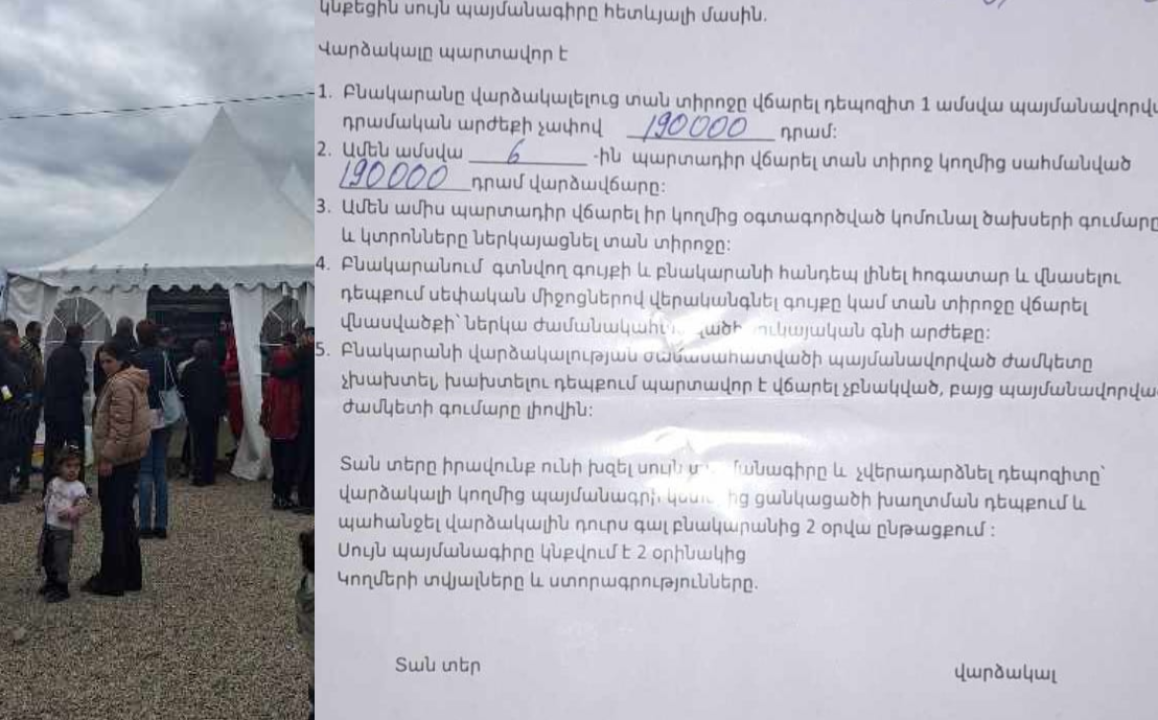 կնքեցին սույն պայմանագիրը հետևյալի մասին.
Վարձակալը պարտավոր է
1. Բնակարանը վարձակալելուց տան տիրոջը վճարել դեպոզիտ 1 ամսվա պայմանավորվ
դրամական արժեքի չափով 190000 դրամ:
2. Ամեն ամսվա 6 -ին պարտադիր վճարել տան տիրոջ կողմից սահմանված
190000 դրամ վարձավճարը:
3. Ամեն ամիս պարտադիր վճարել իր կողմից օգտագործված կոմունալ ծախսերի գումարը
և կտրոնները ներկայացնել տան տիրոջը:
4. Բնակարանում գտնվող գույքի և բնակարանի հանդեպ լինել հոգատար և վնասելու
դեպքում սեփական միջոցներով վերականգնել գույքը կամ տան տիրոջը վճարել
վնասվածքի՝ ներկա գնի արժեքը:
5. Բնակարանի վարձակալության ժամանահատվածի պայմանավորված ժամկետը
չխախտել, խախտելու դեպքում պարտավոր է վճարել չբնակված, բայց պայմանավորվա
ժամկետի գումարը լիովին:
Տան տերը իրավունք ունի խզել սույն և չվերադարձնել դեպոզիտը՝
վարձակալի կողմից ցանկացածի խաղտման դեպքում և
պահանջել վարձակալին դուրս գալ բնակարանից 2 օրվա ընթացքում :
Սույն պայմանագիրը կնքվում է 2 օրինակից
Կողմերի տվյալները և ստորագրությունները.
Տան տեր
վարձակալ